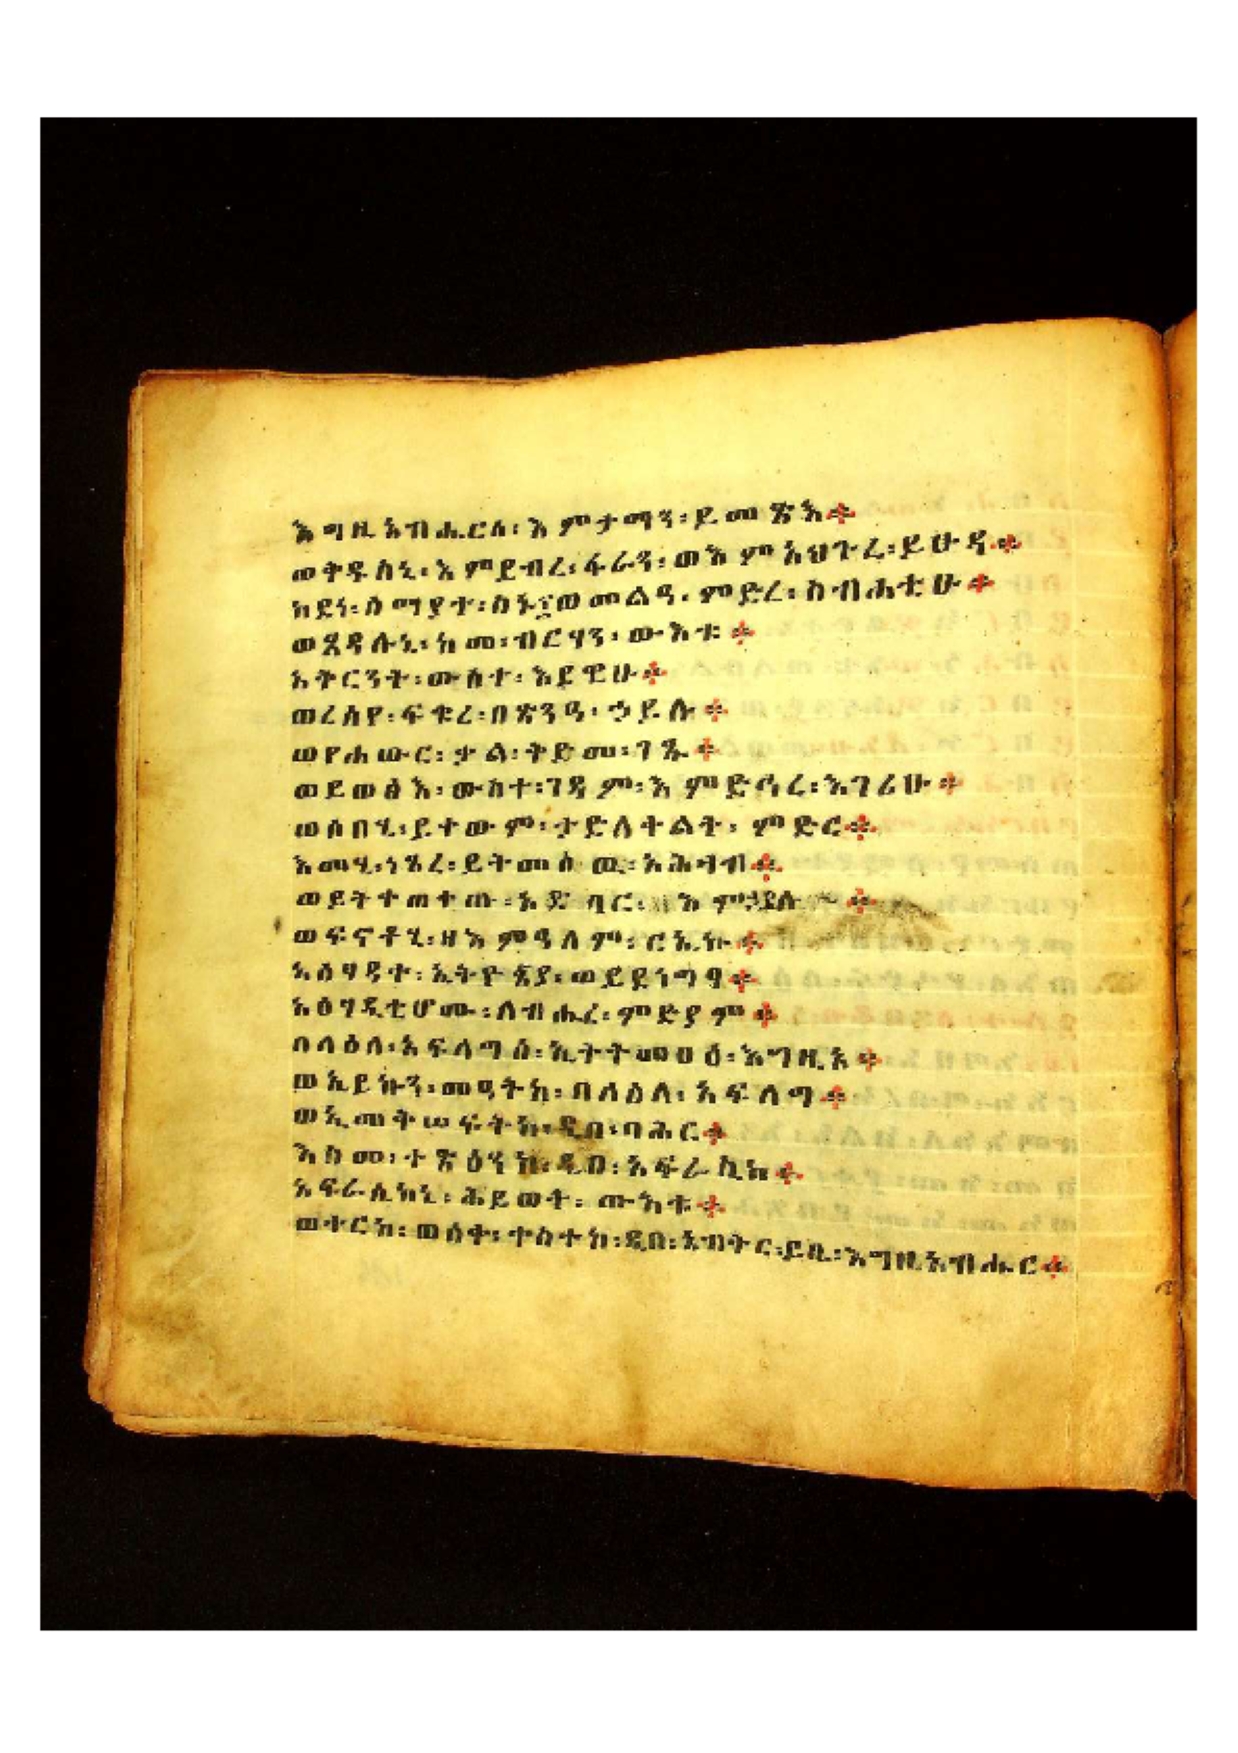 እግዚአብሔርሰ፡ እምታማን፡ ይመጽእ።
ወቅዱስኒ፡ እምደብረ፡ ፋራን፡ ወእምአህጉረ፡ ይሁዳ።
ከደነ፡ ሰማያተ፡ ስኑ፡ ወመልዓ፡ ምድረ፡ ስብሐቲሁ።
ወጸዳሉኒ፡ ከመ፡ ብርሃን፡ ውእቱ።
አቅርንት፡ ውስተ፡ እደዊሁ።
ወረሰየ፡ ፍቁረ፡ በጽንዓ፡ ኃይሉ።
ወየሐውር፡ ቃል፡ ቅድመ፡ ገጹ።
ወይወፅእ፡ ውስተ፡ ገዳም፡ እምድኅረ፡ እገሪሁ።
ወሰበሂ፡ ይተውም፡ ታድለቀልቅ፡ ምድር።
እመሂ፡ ነጸረ፡ ይትመሰዉ፡ አሕዛብ።
ወይትቀጠቀጡ፡ አድባር፡ እምኃይሉ
ወፍናቶሂ፡ ዘእምዓለም፡ ርኢኩ።
አፅሃዳተ፡ ኢትዮጵያ፡ ወይደነግፃ።
አፅሃዲቲሆሙ፡ ለብሔረ፡ ምድያም።
በላዕለ፡ አፍላግሰ፡ ኢትትመዐዕ፡ እግዚአ።
ወኢይኩን፡ መዓትከ፡ በላዕለ፡ አፍላግ።
ወኢመቅሠፍትከ፡ ዲበ፡ ባሕር።
እስመ፡ ተጽዕንከ፡ ዲበ፡ አፍራሲከ።
አፍራሲከኒ፡ ሕይወት፡ ውእቱ።
ወተርከ፡ ወሰቀ፡ ቀስተከ፡ ዲበ፡ አብትር፡ ይቤ፡ እግዚአብሔር።